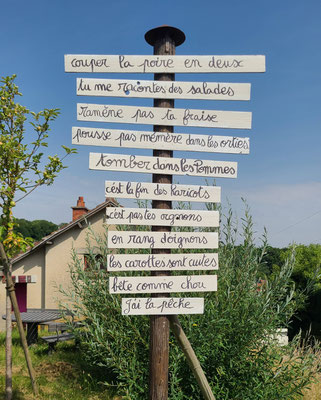 couper la poire en deux
tu me racontes des salades
ramène pas ta fraise
pousse pas mémère dans les orties
tomber dans les Pommes
c'est la fin des haricots
c'est pas tes oignons
en rang d'oignons
les carottes sont cuites
bête comme chou
j'ai la pêche